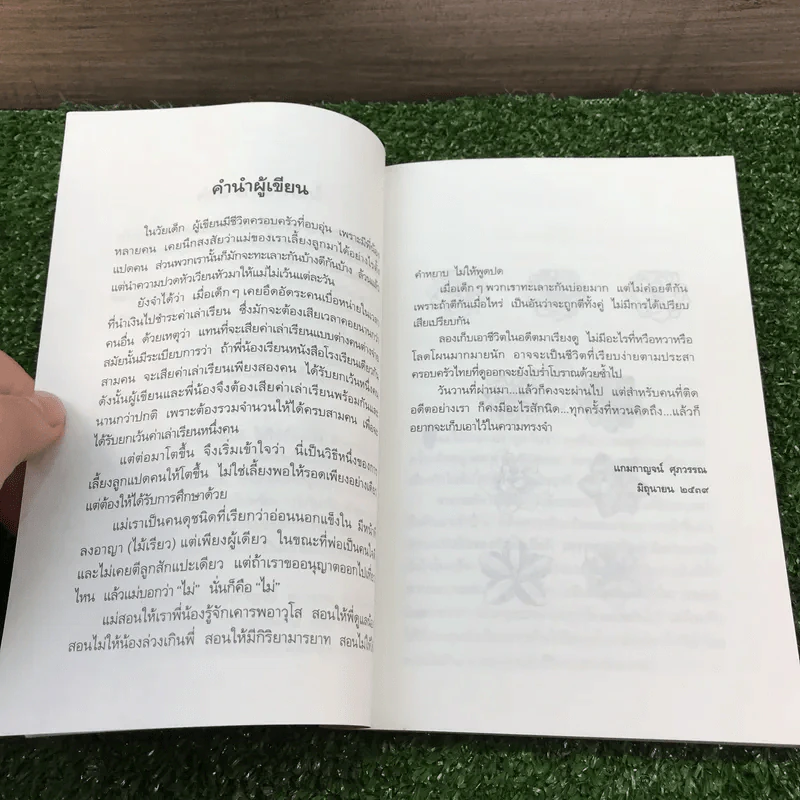 คำนำผู้เขียน
ในวัยเด็ก ผู้เขียนมีชีวิตครอบครัวที่อบอุ่น เพราะมีพี่น้อง
หลายคน เคยนึกสงสัยว่าแม่ของเราเลี้ยงลูกมาได้อย่างไรตั้ง
แปดคน ส่วนพวกเรานั้นก็มักจะทะเลาะกันบ้างตีกันบ้าง ล้วน
แต่นำความปวดหัวเวียนหัวมาให้แม่ไม่เว้นแต่ละวัน
ยังจำได้ว่า เมื่อเด็กๆ เคยอึดอัดระคนเบื่อหน่ายใน
ที่นำเงินไปชำระค่าเล่าเรียน ซึ่งมักจะต้องเสียเวลาคอยนานกว่า
คนอื่น ด้วยเหตุว่า แทนที่จะเสียค่าเล่าเรียนแบบต่างคนต่าง
สมัยนั้นมีระเบียบการว่า ถ้าพี่น้องเรียนหนังสือโรงเรียนเดียวกัน
สามคน จะเสียค่าเล่าเรียนเพียงสองคน ได้รับยกเว้นหนึ่งคน
ดังนั้นผู้เขียนและพี่น้องจึงต้องเสียค่าเล่าเรียนพร้อมกันและ
นานกว่าปกติ เพราะต้องรวมจำนวนให้ได้ครบสามคน เพื่อจะ
ได้รับยกเว้นค่าเล่าเรียนหนึ่งคน
แต่ต่อมาโตขึ้น จึงเริ่มเข้าใจว่า นี่เป็นวิธีหนึ่งของการ
เลี้ยงลูกแปดคนให้โตขึ้น ไม่ใช่เลี้ยงพอให้รอดเพียงอย่างเดียว
แต่ต้องให้ได้รับการศึกษาด้วย
แม่เราเป็นคนดุชนิดที่เรียกว่าอ่อนนอกแข็งใน มีหน้าที่
ลงอาญา (ไม้เรียว) แต่เพียงผู้เดียว ในขณะที่พ่อเป็นคนใจดี
และไม่เคยตีลูกสักแปะเดียว แต่ถ้าเราขออนุญาตออกไปเที่ยว
ไหน แล้วแม่บอกว่า “ไม่” นั่นก็คือ “ไม่”
แม่สอนให้เราพี่น้องรู้จักเคารพอาวุโส สอนให้พี่ดูแลน้อง
สอนไม่ให้น้องล่วงเกินพี่ สอนให้มีกิริยามารยาท สอนไม่ให้
คำหยาบ ไม่ให้พูดปด
เมื่อเด็กๆ พวกเราทะเลาะกันบ่อยมาก แต่ไม่ค่อยตีกัน
เพราะถ้าตีกันเมื่อไหร่ เป็นอันว่าจะถูกตีทั้งคู่ ไม่มีการได้เปรียบ
เสียเปรียบกัน
ลองเก็บเอาชีวิตในอดีตมาเรียงดู ไม่มีอะไรที่หวือหวาหรือ
โลดโผนมากมายนัก อาจจะเป็นชีวิตที่เรียบง่ายตามประสา
ครอบครัวไทยที่ดูออกจะยังโบร่ำโบราณด้วยซ้ำไป
วันวานที่ผ่านมา...แล้วก็คงจะผ่านไป แต่สำหรับคนที่ติด
อดีตอย่างเรา ก็คงมีอะไรสักนิด...ทุกครั้งที่หวนคิดถึง...แล้วก็
อยากจะเก็บเอาไว้ในความทรงจำ
แกมกาญจน์ ศุภวรรณ
มิถุนายน ๒๕๓๙